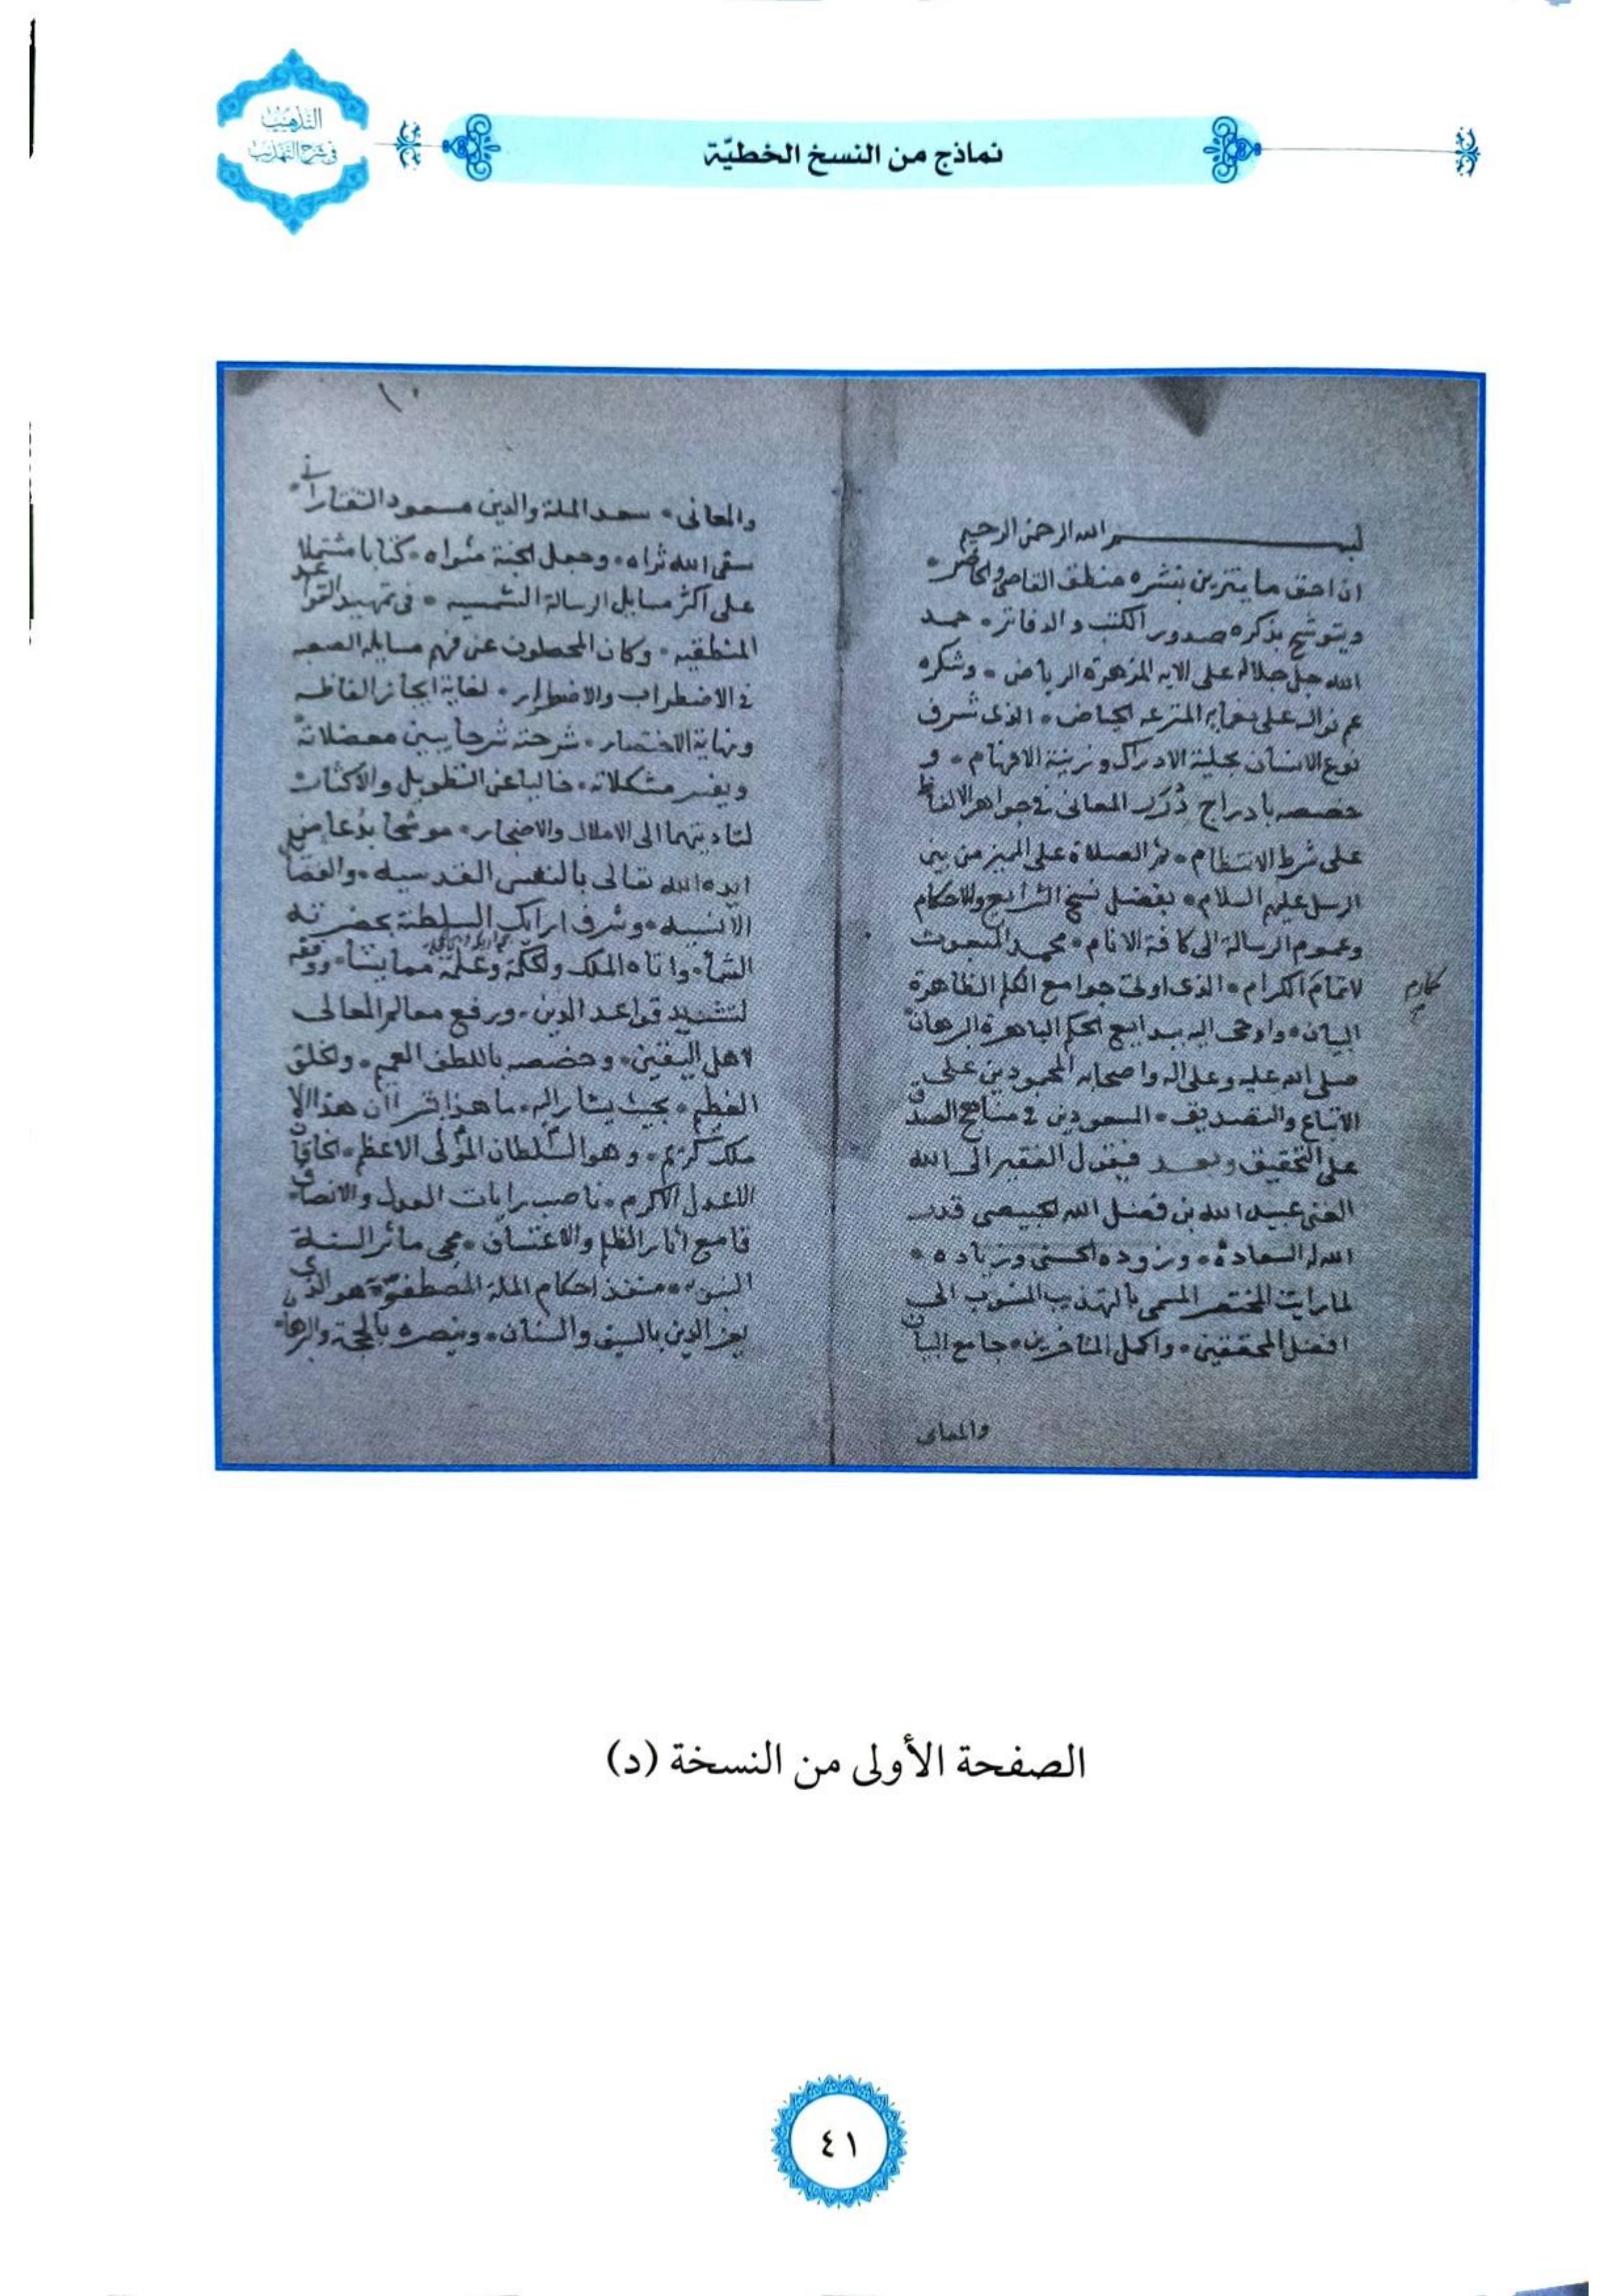 التذهيب
في شرح التهذيب
نماذج من النسخ الخطيّة
بسم الله الرحمن الرحيم
ان احق ما يتزين بنشره منطق القاصي والحاضر
ويتوشح بذكره صدور الكتب والدفاتر حمد
الله جل جلاله على الايه المزهرة الرياض وشكره
عم نواله على نعمايه المترعه الحياض الذى شرف
نوع الانسان بحلية الادراك وزينة الافهام و
خصصه بادراج دُرَر المعانى في جواهر الالفاظ
على شرط الانتظام ثم الصلاة على المميز من بين
الرسل عليهم السلام بفضل نسخ الشرايع والاحكام
وعموم الرسالة الى كافة الانام محمد المبعوث
لاتمام الكرام الذى اوتى جوامع الكلم الظاهرة
مكارم
البيان واوحى اليه ببدايع الحكم الباهرة البرهان
صلى الله عليه وعلى اله واصحابه المحمودين على
الاتباع والتصديق المسعودين في مناهج الصدق
على التحقيق وبعد فيقول الفقير الى الله
الغنى عبيد الله بن فضل الله الخبيصى قدر
الله له السعادة وزوده الحسنى وزياده
لما رايت المختصر المسمى بالتهذيب المنسوب الى
افضل المحققين واكمل المتاخرين جامع البيان
والمعانى
١٠
والمعانى سعد الملة والدين مسعود التفتازانى
سقى الله ثراه وجعل الجنة مثواه كتابا مشتملا
على اكثر مسايل الرسالة الشمسيه في تمهيد القواعد
المنطقيه وكان المحصلون عن فهم مسايله الصعبه
في الاضطراب والاضطرار لغاية ايجاز الفاظه
ونهاية الاختصار شرحته شرحا يبين معضلاته
ويفسر مشكلاته خاليا عن التطويل والاكثار
لتاديتهما الى الاملال والاضجار موشحا بدُعا من
ايده الله تعالى بالنفس القدسيه والفضا
الانسيه وشرف ارايك السلطنة بحضرته
الشما واتاه الملك والحكمة وعلمه مما يشا ووفقه
لتشييد قواعد الدين ورفع معالم المعالى
لاهل اليقين وخصصه باللطف العميم والخلق
العظيم بحيث يشار اليه ما هذا بشرا ان هذا الا
ملك كريم وهو السلطان المولى الاعظم الخاقان
الاعدل الاكرم ناصب رايات العدل والانصاف
قامع اثار الظلم والاعتساف محى ماثر السنة
النبويه منفذ احكام الملة المصطفوية هو الذى
يعز الدين بالسيف والسنان وينصره بالحجة والبرهان
الصفحة الأولى من النسخة (د)
٤١